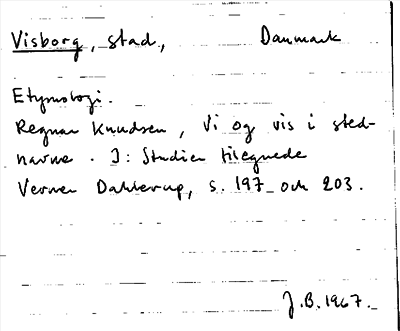 Visborg, stad, Danmark
Etymologi.
Regnar Knudsen, Vi og vis i sted-
navne. I: Studier tilegnede
Verner Dahlerup, s. 197 och 203.
J.B. 1967.